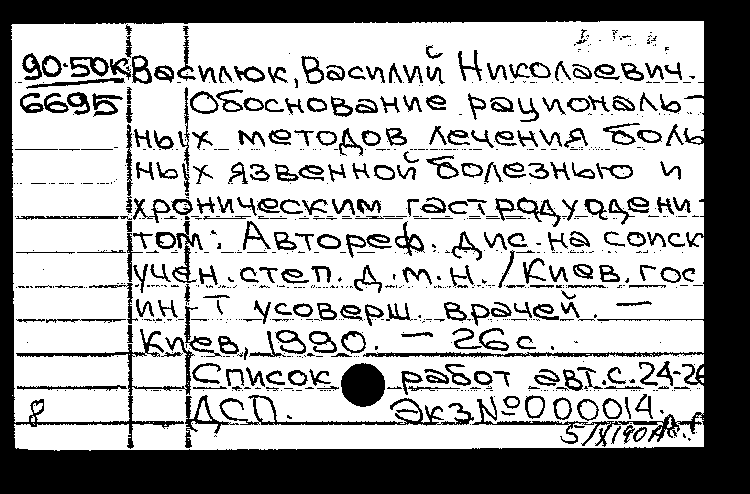 90-50К Василюк, Василий Николаевич.
6695 Обоснование рациональ-
ных методов лечения боль
ных язвенной болезнью и
хроническим гастродуодени-
том: Автореф. дис. на соиск
учен. степ. д.м.н. / Киев. гос
ин-т усоверш. врачей. —
Киев, 1990. — 26 с.
Список работ авт. с. 24-26
8 ДСП. Экз № 000014.
5/X/90